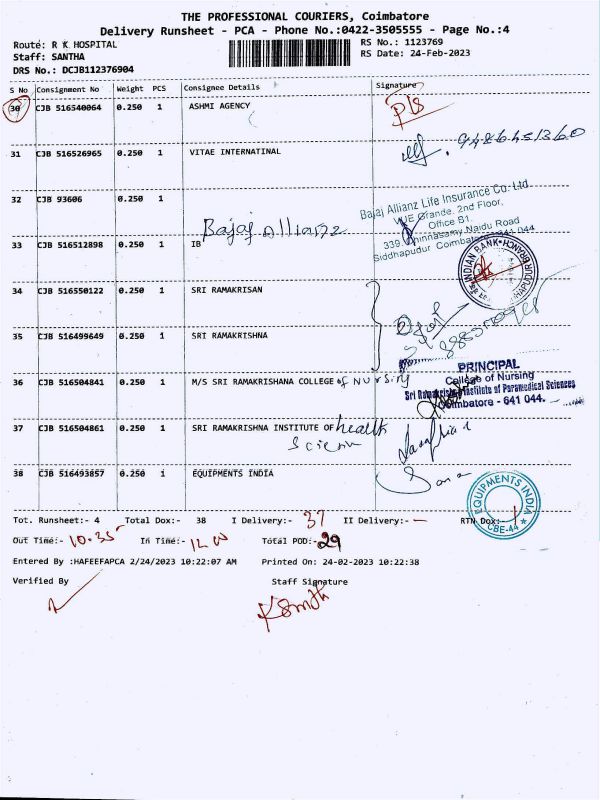 THE PROFESSIONAL COURIERS, Coimbatore
Delivery Runsheet - PCA - Phone No.:0422-3505555 - Page No.:4
Route: R K HOSPITAL
RS No.: 1123769
Staff: SANTHA
RS Date: 24-Feb-2023
DRS No.: DCJB112376904
S No Consignment No Weight PCS Consignee Details Signature
30 CJB 516540064 0.250 1 ASHMI AGENCY
31 CJB 516526965 0.250 1 VITAE INTERNATINAL
9486451360
32 CJB 93606 0.250 1
Bajaj Allianz
Bajaj Allianz Life Insurance Co. Ltd.
VUE Grande, 2nd Floor,
Office S1.
339, Chinnasamy Naidu Road
Siddhapudur Coimbatore 641 044
33 CJB 516512898 0.250 1 IB
INDIAN BANK
34 CJB 516550122 0.250 1 SRI RAMAKRISAN
35 CJB 516499649 0.250 1 SRI RAMAKRISHNA
36 CJB 516504841 0.250 1 M/S SRI RAMAKRISHANA COLLEGE of NURSING
PRINCIPAL
College of Nursing
Sri Ramakrishna Institute of Paramedical Sciences
Coimbatore - 641 044.
37 CJB 516504861 0.250 1 SRI RAMAKRISHNA INSTITUTE OF health
Scienc
38 CJB 516493857 0.250 1 EQUIPMENTS INDIA
EQUIPMENTS INDIA
CBE-44
Tot. Runsheet:- 4 Total Dox:- 38 I Delivery:- 37 II Delivery:- — RTN Dox:- 1
Out Time:- 10.35 In Time:- 12.00 Total POD:- 29
Entered By :HAFEEFAPCA 2/24/2023 10:22:07 AM Printed On: 24-02-2023 10:22:38
Verified By Staff Signature